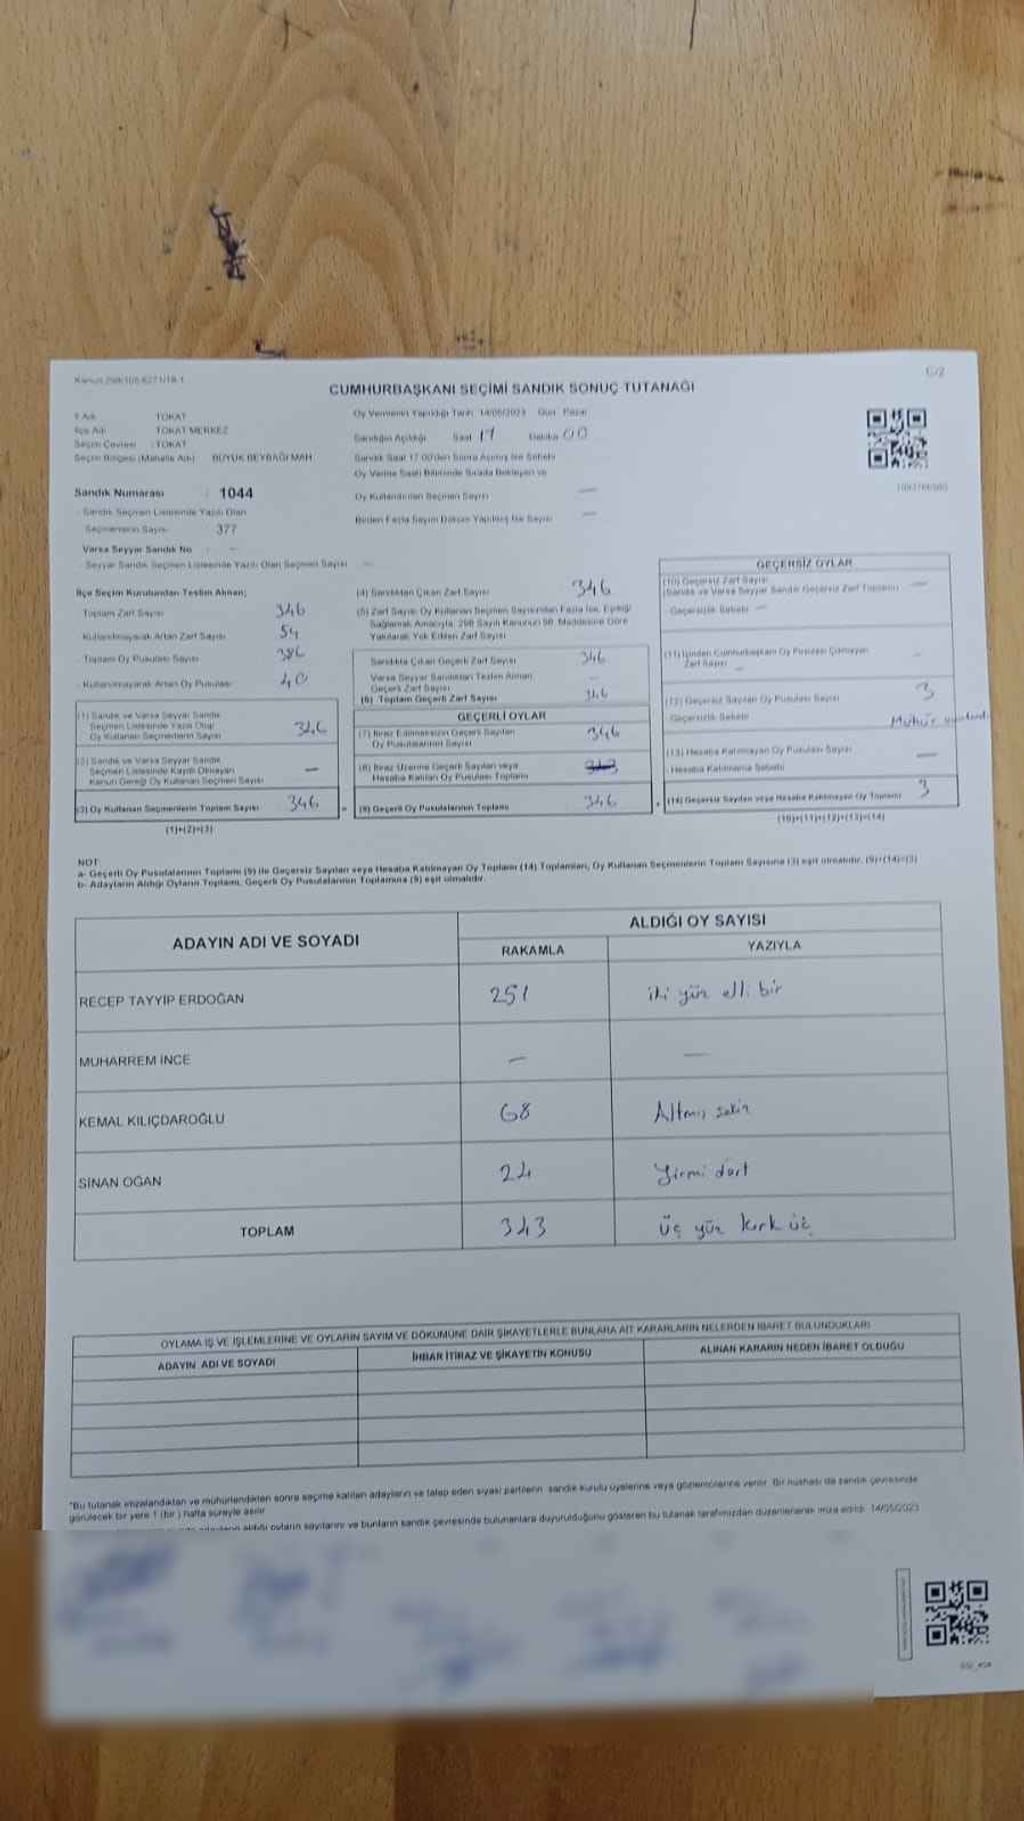 C/2
CUMHURBAŞKANI SEÇİMİ SANDIK SONUÇ TUTANAĞI
İl Adı TOKAT
İlçe Adı TOKAT MERKEZ
Seçim Çevresi : TOKAT
Seçim Bölgesi (Mahalle Adı) BÜYÜK BEYBAĞI MAH
Oy Vermenin Yapıldığı Tarih 14/05/2023 Gün Pazar
Sandığın Açıldığı Saat 17 Dakika 00
Sandık Saat 17.00'den Sonra Açılmış İse Sebebi
Oy Verme Saati Bitiminde Sırada Bekleyen ve
Oy Kullandırılan Seçmen Sayısı —
Birden Fazla Sayım Döküm Yapılmış İse Sayısı —
Sandık Numarası : 1044
Sandık Seçmen Listesinde Yazılı Olan
Seçmenlerin Sayısı 377
Varsa Seyyar Sandık No
Seyyar Sandık Seçmen Listesinde Yazılı Olan Seçmen Sayısı
İlçe Seçim Kurulundan Teslim Alınan;
Toplam Zarf Sayısı
Kullanılmayarak Artan Zarf Sayısı 54
Toplam Oy Pusulası Sayısı 386
Kullanılmayarak Artan Oy Pusulası 40
(1) Sandık ve Varsa Seyyar Sandık
Seçmen Listesinde Yazılı Olup
Oy Kullanan Seçmenlerin Sayısı 346
(2) Sandık ve Varsa Seyyar Sandık
Seçmen Listesinde Kayıtlı Olmayan
Kanun Gereği Oy Kullanan Seçmen Sayısı —
(3) Oy Kullanan Seçmenlerin Toplam Sayısı 346
(1)+(2)=(3)
(4) Sandıktan Çıkan Zarf Sayısı 346
(5) Zarf Sayısı Oy Kullanan Seçmen Sayısından Fazla İse, Eşitliği
Sağlamak Amacıyla, 298 Sayılı Kanunun 98. Maddesine Göre
Yakılarak Yok Edilen Zarf Sayısı
Sandıkta Çıkan Geçerli Zarf Sayısı 346
Varsa Seyyar Sandıktan Teslim Alınan
Geçerli Zarf Sayısı
(6) Toplam Geçerli Zarf Sayısı 346
GEÇERLİ OYLAR
(7) İtiraz Edilmeksizin Geçerli Sayılan
Oy Pusulalarının Sayısı 346
(8) İtiraz Üzerine Geçerli Sayılan veya
Hesaba Katılan Oy Pusulası Toplamı
(9) Geçerli Oy Pusulalarının Toplamı 346
GEÇERSİZ OYLAR
(10) Geçersiz Zarf Sayısı
(Sandık ve Varsa Seyyar Sandık Geçersiz Zarf Toplamı) —
Geçersizlik Sebebi —
(11) İçinden Cumhurbaşkanı Oy Pusulası Çıkmayan
Zarf Sayısı
(12) Geçersiz Sayılan Oy Pusulası Sayısı 3
Geçersizlik Sebebi Mühür
(13) Hesaba Katılmayan Oy Pusulası Sayısı —
Hesaba Katılmama Sebebi
(14) Geçersiz Sayılan veya Hesaba Katılmayan Oy Toplamı 3
(10)+(11)+(12)+(13)=(14)
NOT:
a- Geçerli Oy Pusulalarının Toplamı (9) ile Geçersiz Sayılan veya Hesaba Katılmayan Oy Toplamı (14) Toplamları, Oy Kullanan Seçmenlerin Toplam Sayısına (3) eşit olmalıdır. (9)+(14)=(3)
b- Adayların Aldığı Oyların Toplamı, Geçerli Oy Pusulalarının Toplamına (9) eşit olmalıdır.
ADAYIN ADI VE SOYADI ALDIĞI OY SAYISI
RAKAMLA YAZIYLA
RECEP TAYYİP ERDOĞAN 251 iki yüz elli bir
MUHARREM İNCE — —
KEMAL KILIÇDAROĞLU 68 Altmış sekiz
SİNAN OĞAN 24 Yirmi dört
TOPLAM 343 üç yüz kırk üç
OYLAMA İŞ VE İŞLEMLERİNE VE OYLARIN SAYIM VE DÖKÜMÜNE DAİR ŞİKAYETLERLE BUNLARA AİT KARARLARIN NELERDEN İBARET BULUNDUKLARI
ADAYIN ADI VE SOYADI İHBAR İTİRAZ VE ŞİKAYETİN KONUSU ALINAN KARARIN NEDEN İBARET OLDUĞU
"Bu tutanak imzalandıktan ve mühürlendikten sonra seçime katılan adayların ve talep eden siyasi partilerin sandık kurulu üyelerine veya gözlemcilerine verilir. Bir nüshası da sandık çevresinde
görülecek bir yere 1 (bir) hafta süreyle asılır.
adayların aldığı oyların sayılarını ve bunların sandık çevresinde bulunanlara duyurulduğunu gösteren bu tutanak tarafımızdan düzenlenerek imza edildi. 14/05/2023